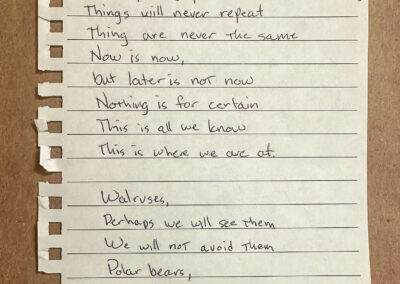 Things will never repeat
Thing are never the same
Now is now,
but later is not now
Nothing is for certain
This is all we know
This is where we are at.
Walruses,
Perhaps we will see them
We will not avoid them
Polar bears,